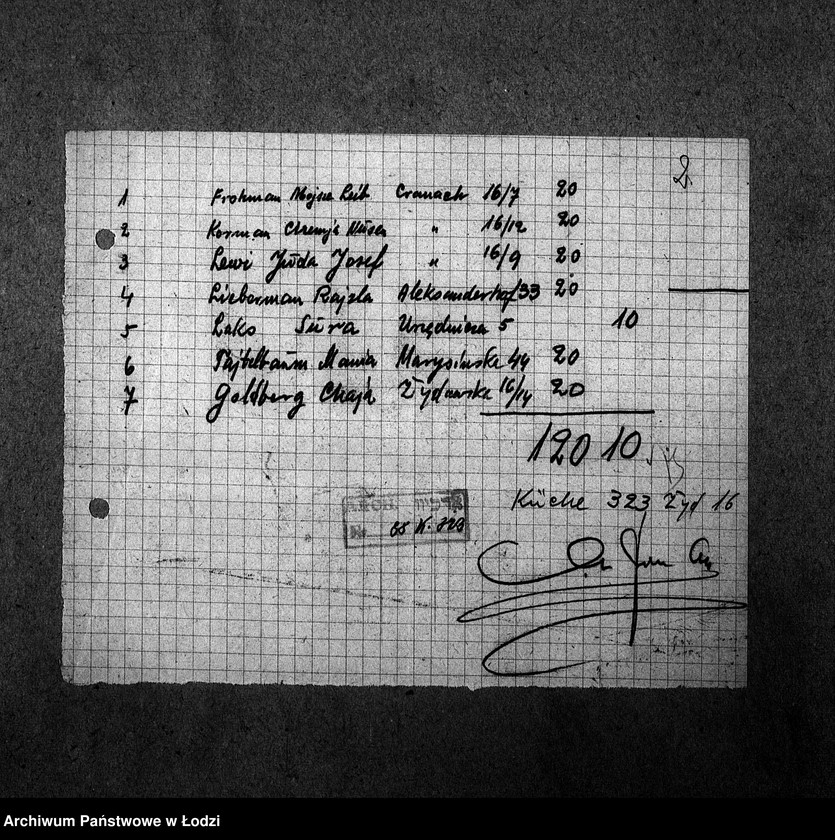 2
1 Frohman Mojsze Leib Cranach 16/7 20
2 Korman Chemja Nusen " 16/12 20
3 Lewi Juda Josef " 16/9 20
4 Lieberman Rajzla Aleksanderhof 33 20
5 Laks Sura Urzędnicza 5 10
6 Tajtelbaum Mania Marysińska 44 20
7 Goldberg Chaja Żydowska 16/14 20
120 10
Küche 323 Żyd 16
ARCH.
Nr.
Archiwum Państwowe w Łodzi